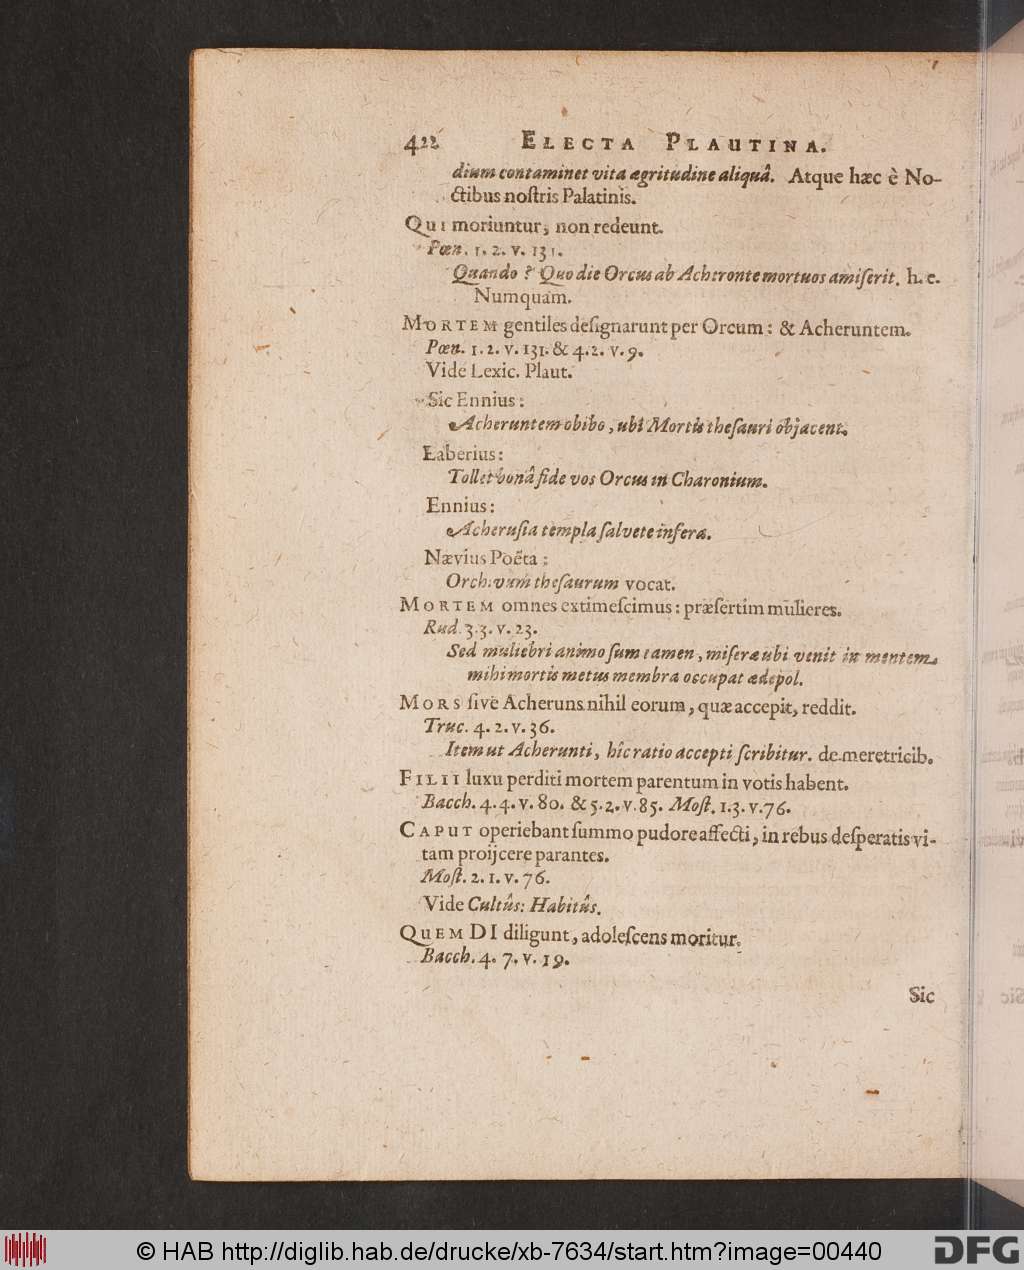 422 ELECTA PLAUTINA.
dium contaminet vita ægritudine aliquâ. Atque hæc è No-
ctibus noſtris Palatinis.
QUI moriuntur, non redeunt.
Pœn. 1. 2. v. 131.
Quando? Quo die Orcus ab Acheronte mortuos amiſerit. h. e.
Numquam.
MORTEM gentiles deſignarunt per Orcum: & Acheruntem.
Pœn. 1. 2. v. 131. & 4. 2. v. 9.
Vide Lexic. Plaut.
Sic Ennius:
Acheruntem obibo, ubi Mortis theſauri objacent.
Laberius:
Tollet bonâ fide vos Orcus in Charonium.
Ennius:
Acheruſia templa ſalvete infera.
Nævius Poëta:
Orchivum theſaurum vocat.
MORTEM omnes extimeſcimus: præſertim mulieres.
Rud. 3. 3. v. 23.
Sed muliebri animo ſum tamen, miſeræ ubi venit in mentem
mihi mortis metus membra occupat ædepol.
MORS ſive Acheruns nihil eorum, quæ accepit, reddit.
Truc. 4. 2. v. 36.
Item ut Acherunti, hîc ratio accepti ſcribitur. de meretricib.
FILII luxu perditi mortem parentum in votis habent.
Bacch. 4. 4. v. 80. & 5. 2. v. 85. Moſt. 1. 3. v. 76.
CAPUT operiebant ſummo pudore affecti, in rebus deſperatis vi-
tam proijcere parantes.
Moſt. 2. 1. v. 76.
Vide Cultûs: Habitûs.
QUEM DI diligunt, adoleſcens moritur.
Bacch. 4. 7. v. 19.
Sic
© HAB http://diglib.hab.de/drucke/xb-7634/start.htm?image=00440
DFG